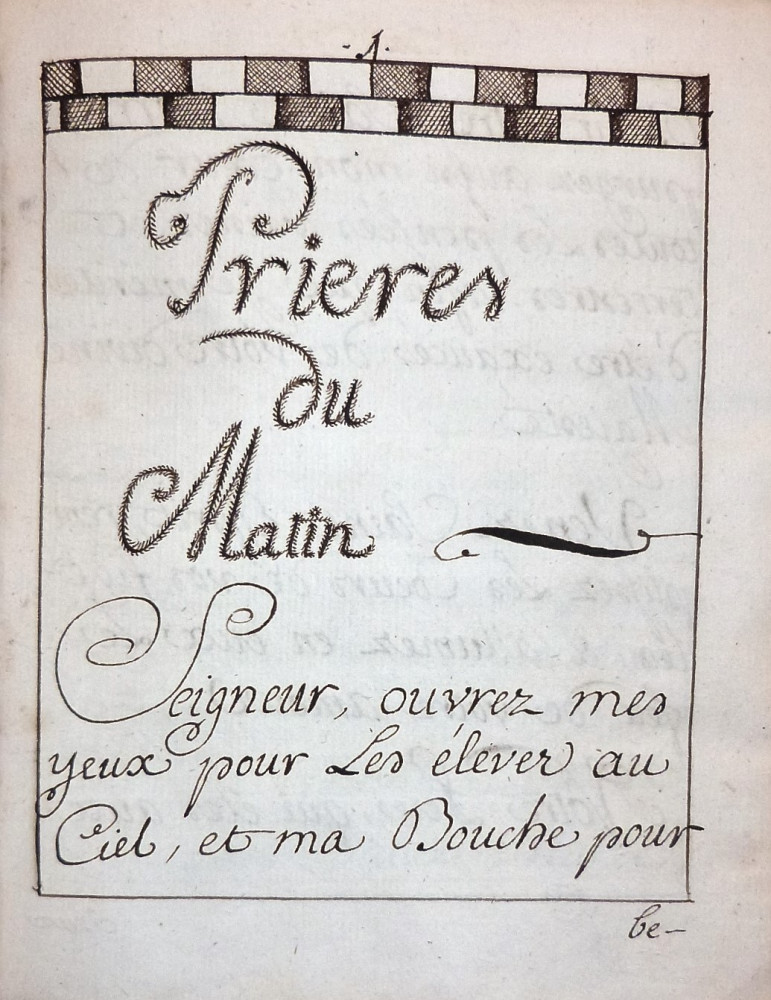 .1.
Prieres
du
Matin
Seigneur, ouvrez mes
yeux pour Les élever au
Ciel, et ma Bouche pour
be-